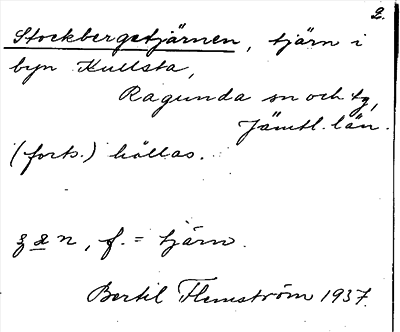 2.
Stockbergstjärnen, tjärn i
byn Kullsta,
Ragunda sn och tg,
Jämtl. län.
(forts.) hållas.
f. = tjärn.
Bertil Flemström 1937.